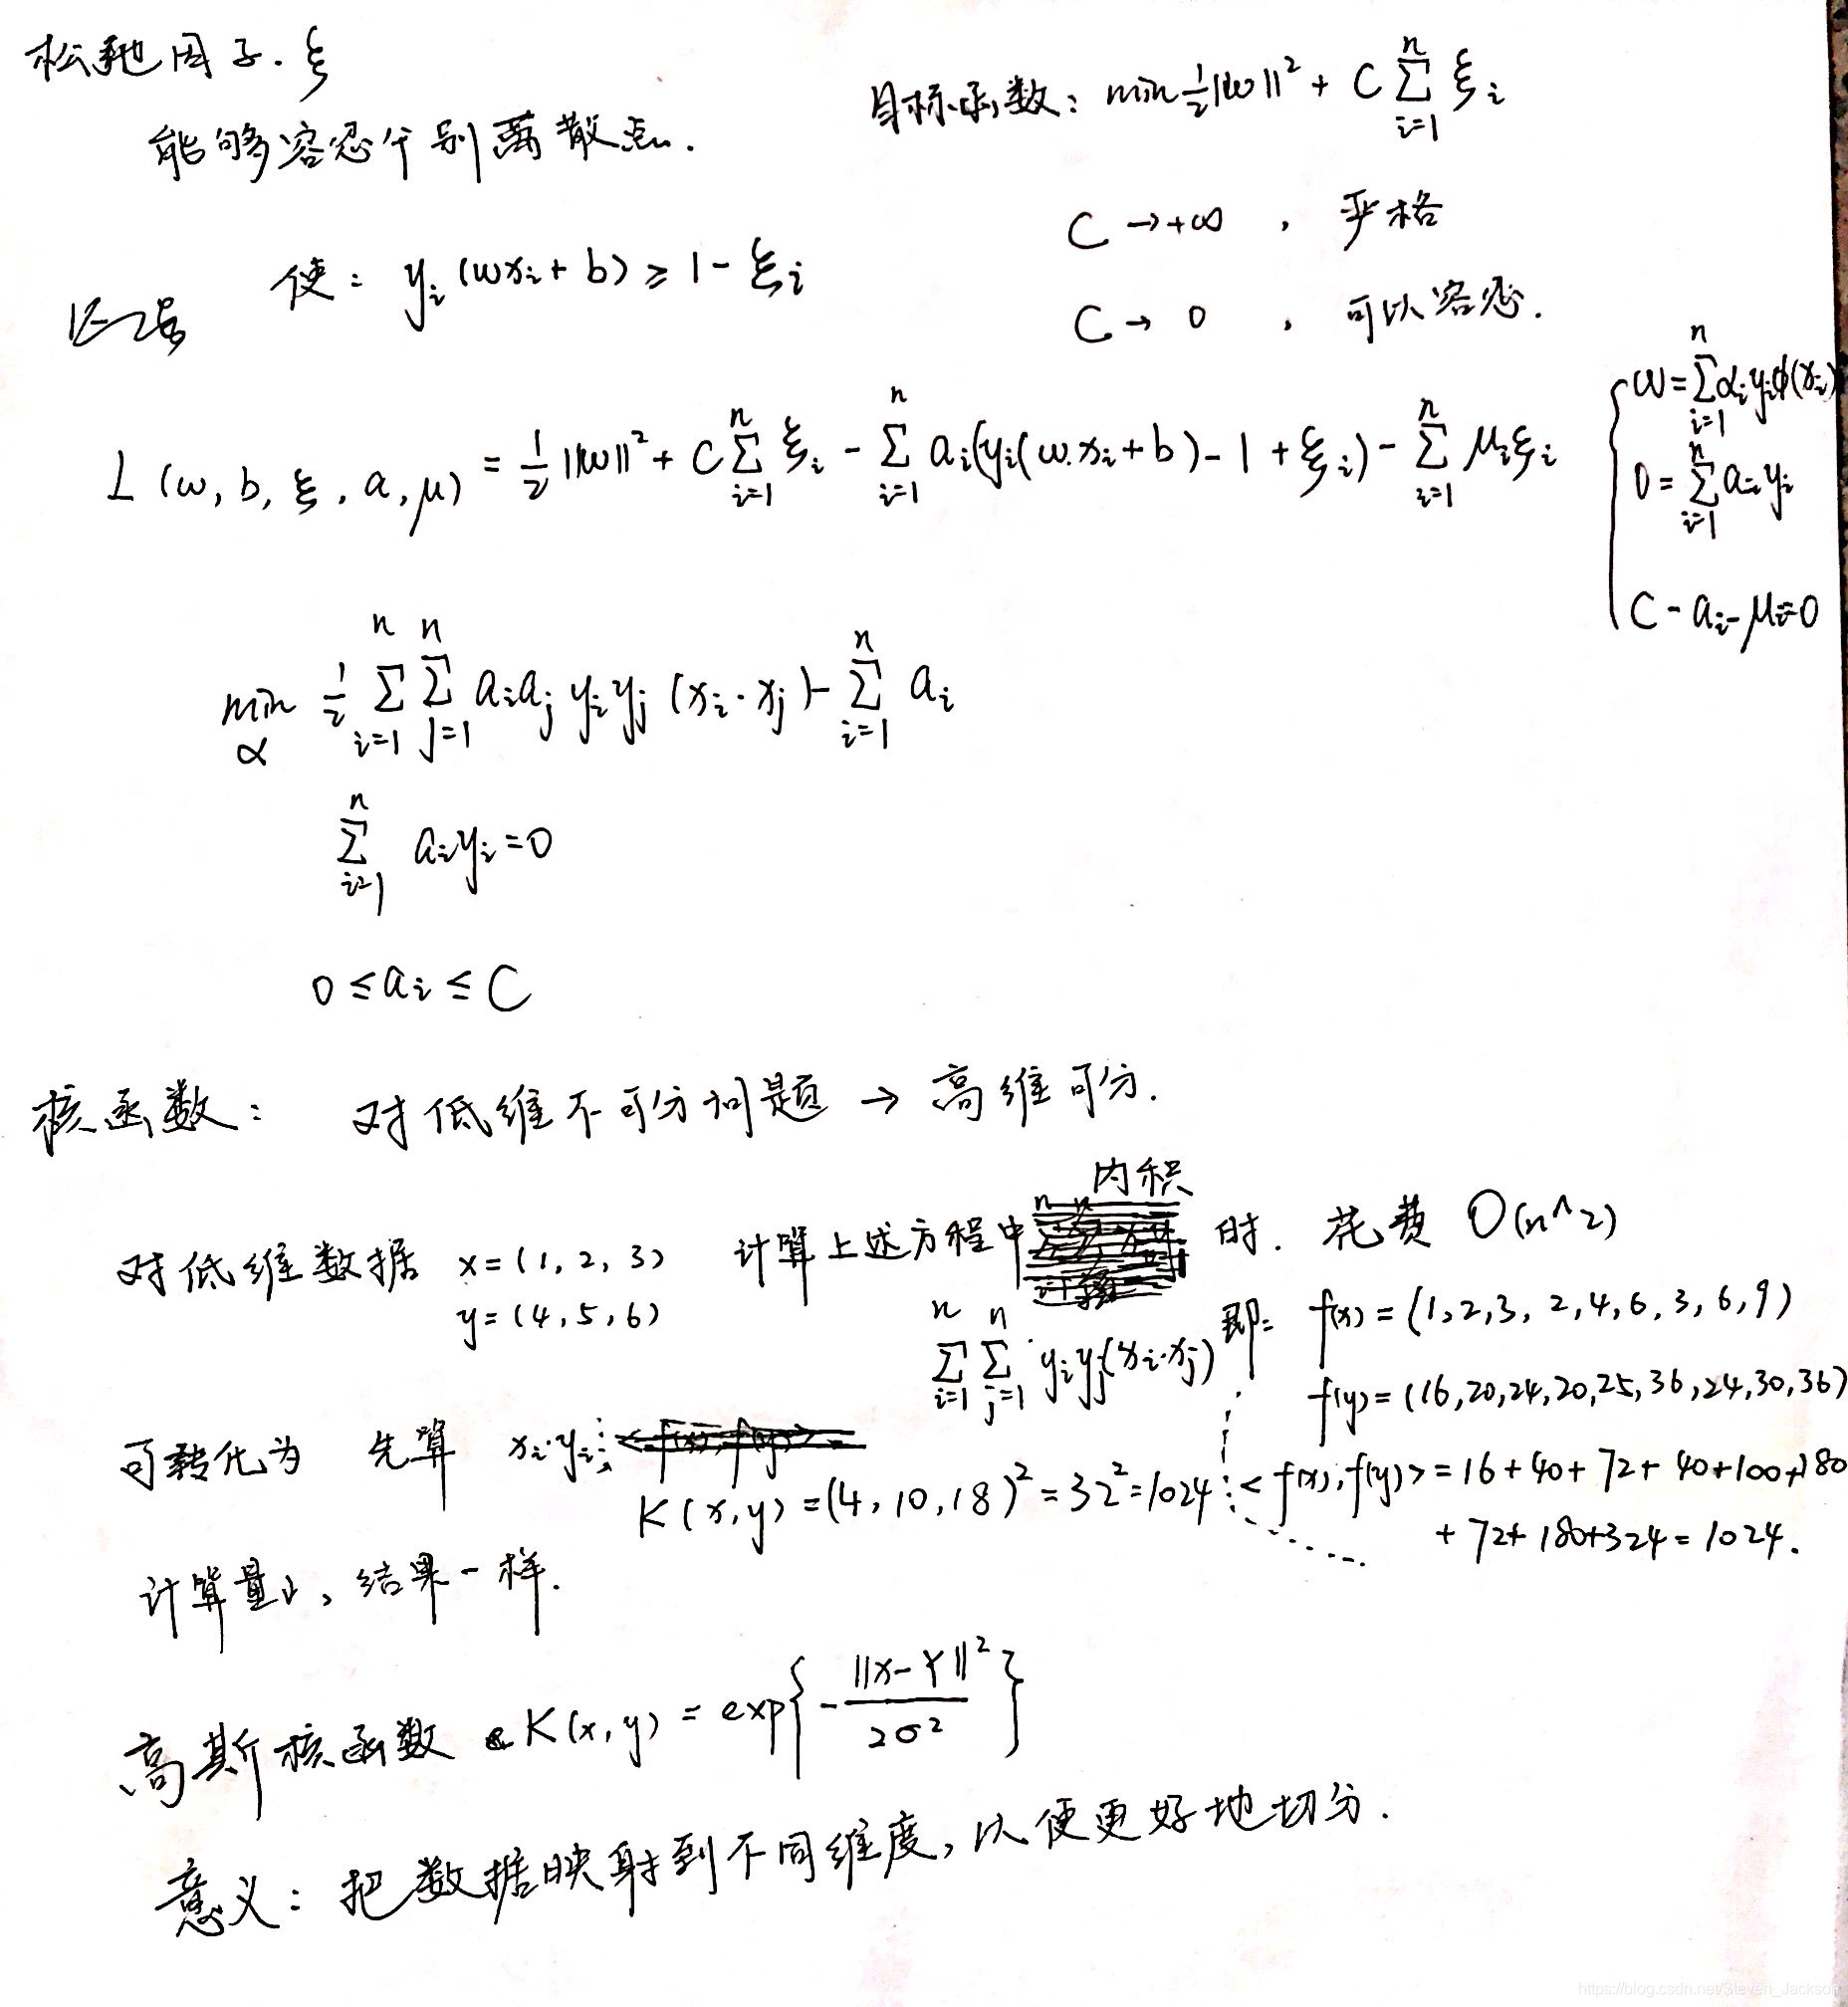 松弛因子. ξ
能够容忍个别离散点.
目标函数: min ½||w||² + C∑_{i=1}^{n} ξi
使: yi(wxi + b) ≥ 1 - ξi
C → +∞ , 严格
C → 0 , 可以容忍.
L(w, b, ξ, a, μ) = ½||w||² + C∑_{i=1}^{n} ξi - ∑_{i=1}^{n} ai(yi(w.xi + b) - 1 + ξi) - ∑_{i=1}^{n} μiξi
w = ∑_{i=1}^{n} αiyiϕ(xi)
0 = ∑_{i=1}^{n} aiyi
C - ai - μi = 0
min_α ½ ∑_{i=1}^{n} ∑_{j=1}^{n} aiaj yiyj (xi·xj) - ∑_{i=1}^{n} ai
∑_{i=1}^{n} aiyi = 0
0 ≤ ai ≤ C
核函数: 对低维不可分问题 → 高维可分.
对低维数据 x = (1, 2, 3) 计算上述方程中 内积 时. 花费 O(n^2)
y = (4, 5, 6)
∑_{i=1}^{n} ∑_{j=1}^{n} yiyj(xi·xj) 即: f(x) = (1,2,3, 2,4,6,3,6,9)
f(y) = (16,20,24,20,25,36,24,30,36)
可转化为 先算 xi·yi: <f(x), f(y)>
K(x,y) = (4, 10, 18)² = 32² = 1024 <f(x), f(y)> = 16 + 40 + 72 + 40 + 100 + 180
+ 72 + 180 + 324 = 1024.
计算量小, 结果一样.
高斯核函数 K(x,y) = exp{-||x-Y||²/2σ²}
意义: 把数据映射到不同维度, 以便更好地切分.
https://blog.csdn.net/Steven_Jackson